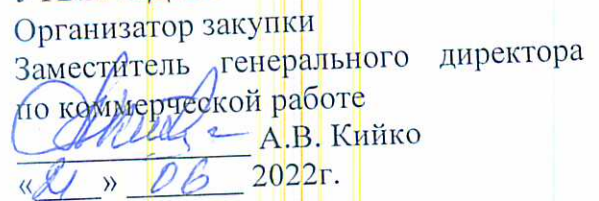 Организатор закупки
Заместитель генерального директора
по коммерческой работе
А.В. Кийко
« » 06 2022г.